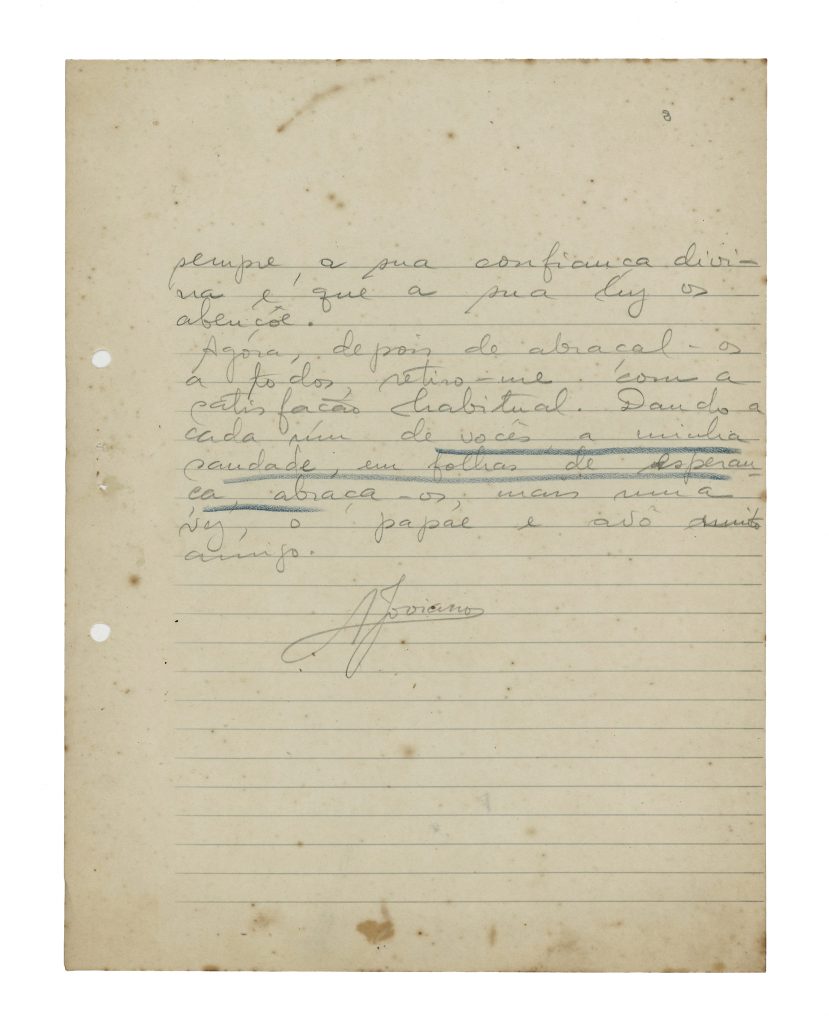 3
sempre, a sua confiança divi-
na e que a sua luz os
abençõe.
Agora, depois de abraçal-os
a todos, retiro-me com a
satisfacão habitual. Dando a
cada um de vocês a minha
saudade, em folhas de esperan-
ça, abraça-os, mais uma
vez, o papae e avô muito
amigo.
A Joviano